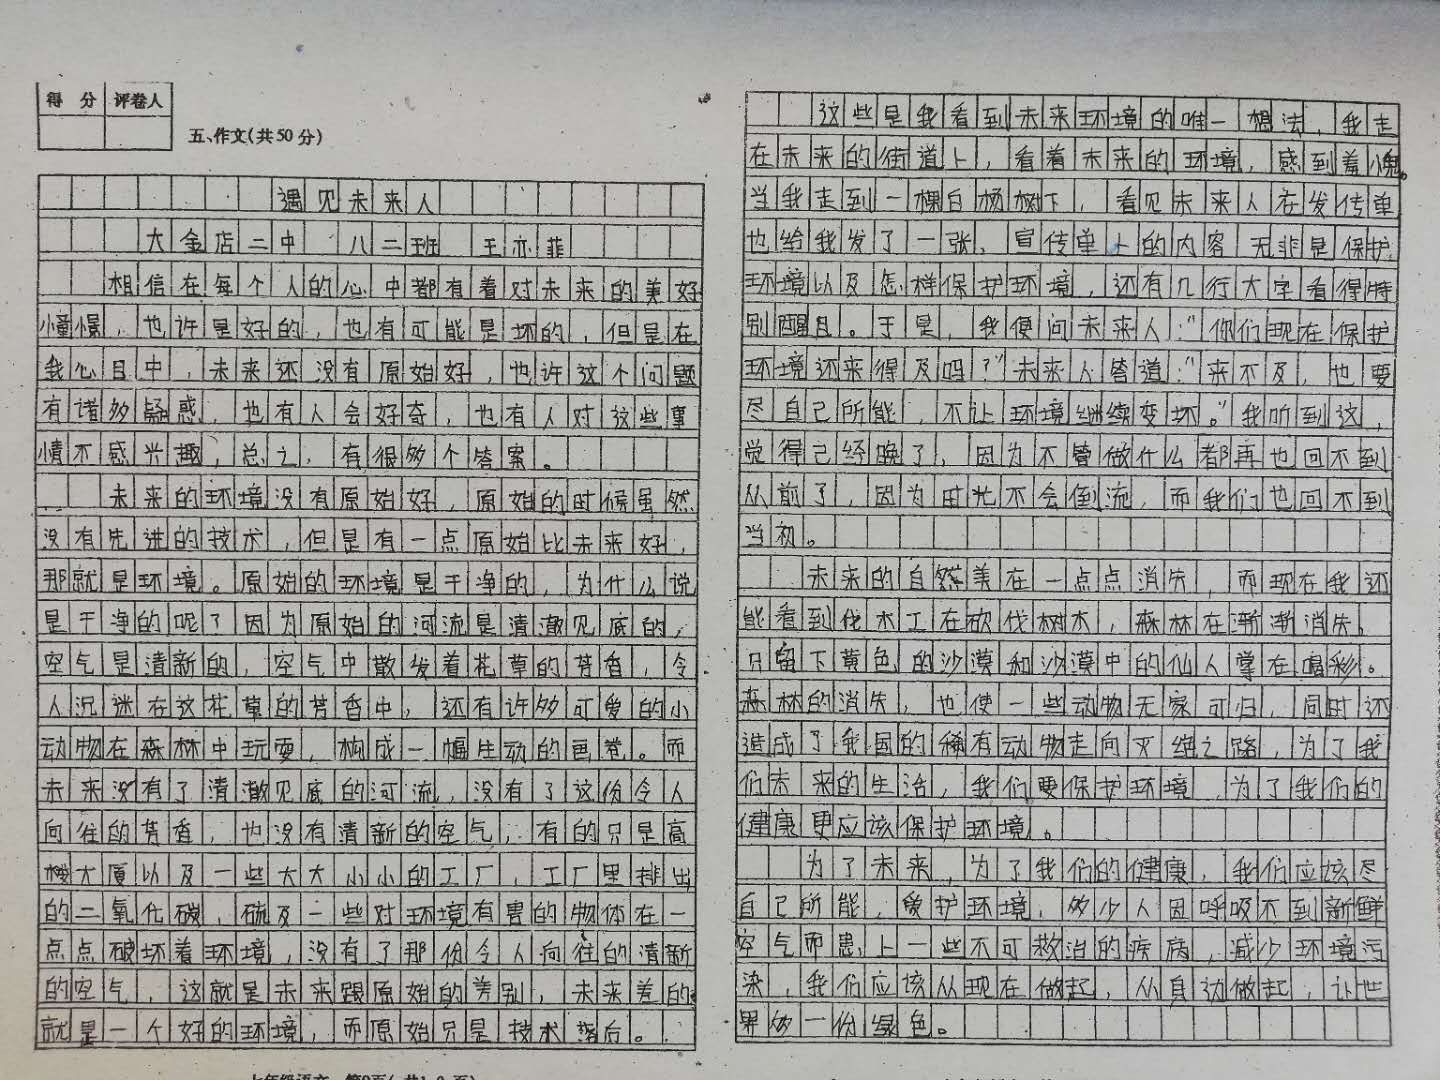 得 分 评卷人
五、作文(共50分)
遇见未来人
大金店二中 八二班 王亦菲
相信在每个人的心中都有着对未来的美好
憧憬，也许是好的，也有可能是坏的，但是在
我心目中，未来还没有原始好，也许这个问题
有诸多疑惑，也有人会好奇，也有人对这些事
情不感兴趣，总之，有很多个答案。
未来的环境没有原始好，原始的时候虽然
没有先进的技术，但是有一点原始比未来好，
那就是环境。原始的环境是干净的，为什么说
是干净的呢？因为原始的河流是清澈见底的，
空气是清新的，空气中散发着花草的芳香，令
人沉迷在这花草的芳香中，还有许多可爱的小
动物在森林中玩耍，构成一幅生动的画卷。而
未来没有了清澈见底的河流，没有了这份令人
向往的芳香，也没有清新的空气，有的只是高
楼大厦以及一些大大小小的工厂，工厂里排出
的二氧化碳，硫及一些对环境有害的物体在一
点点破坏着环境，没有了那份令人向往的清新
的空气，这就是未来跟原始的差别，未来差的
就是一个好的环境，而原始只是技术落后。
这些是我看到未来环境的唯一想法，我走
在未来的街道上，看着未来的环境，感到羞愧。
当我走到一棵白杨树下，看见未来人在发传单
也给我发了一张，宣传单上的内容无非是保护
环境以及怎样保护环境，还有几行大字看得特
别醒目。于是，我便问未来人："你们现在保护
环境还来得及吗？"未来人答道："来不及，也要
尽自己所能，不让环境继续变坏。"我听到这，
觉得已经晚了，因为不管做什么都再也回不到
从前了，因为时光不会倒流，而我们也回不到
当初。
未来的自然美在一点点消失，而现在我还
能看到伐木工在砍伐树木，森林在渐渐消失，
只留下黄色的沙漠和沙漠中的仙人掌在喝彩。
森林的消失，也使一些动物无家可归，同时还
造成了我国的稀有动物走向灭绝之路，为了我
们未来的生活，我们要保护环境，为了我们的
健康更应该保护环境。
为了未来，为了我们的健康，我们应该尽
自己所能，爱护环境，多少人因呼吸不到新鲜
空气而患上一些不可救治的疾病，减少环境污
染，我们应该从现在做起，从身边做起，让世
界多一份绿色。